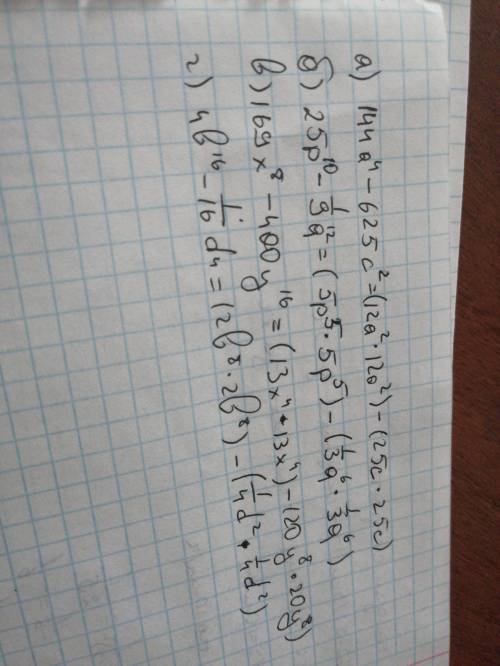 а) 144a⁴ - 625c² = (12a² · 12a²) - (25c · 25c)
б) 25p¹⁰ - 1/9 q¹² = (5p⁵ · 5p⁵) - (1/3 q⁶ · 1/3 q⁶)
в) 169x⁸ - 400y¹⁶ = (13x⁴ · 13x⁴) - (20y⁸ · 20y⁸)
г) 4b¹⁶ - 1/16 d⁴ = (2b⁸ · 2b⁸) - (1/4 d² · 1/4 d²)